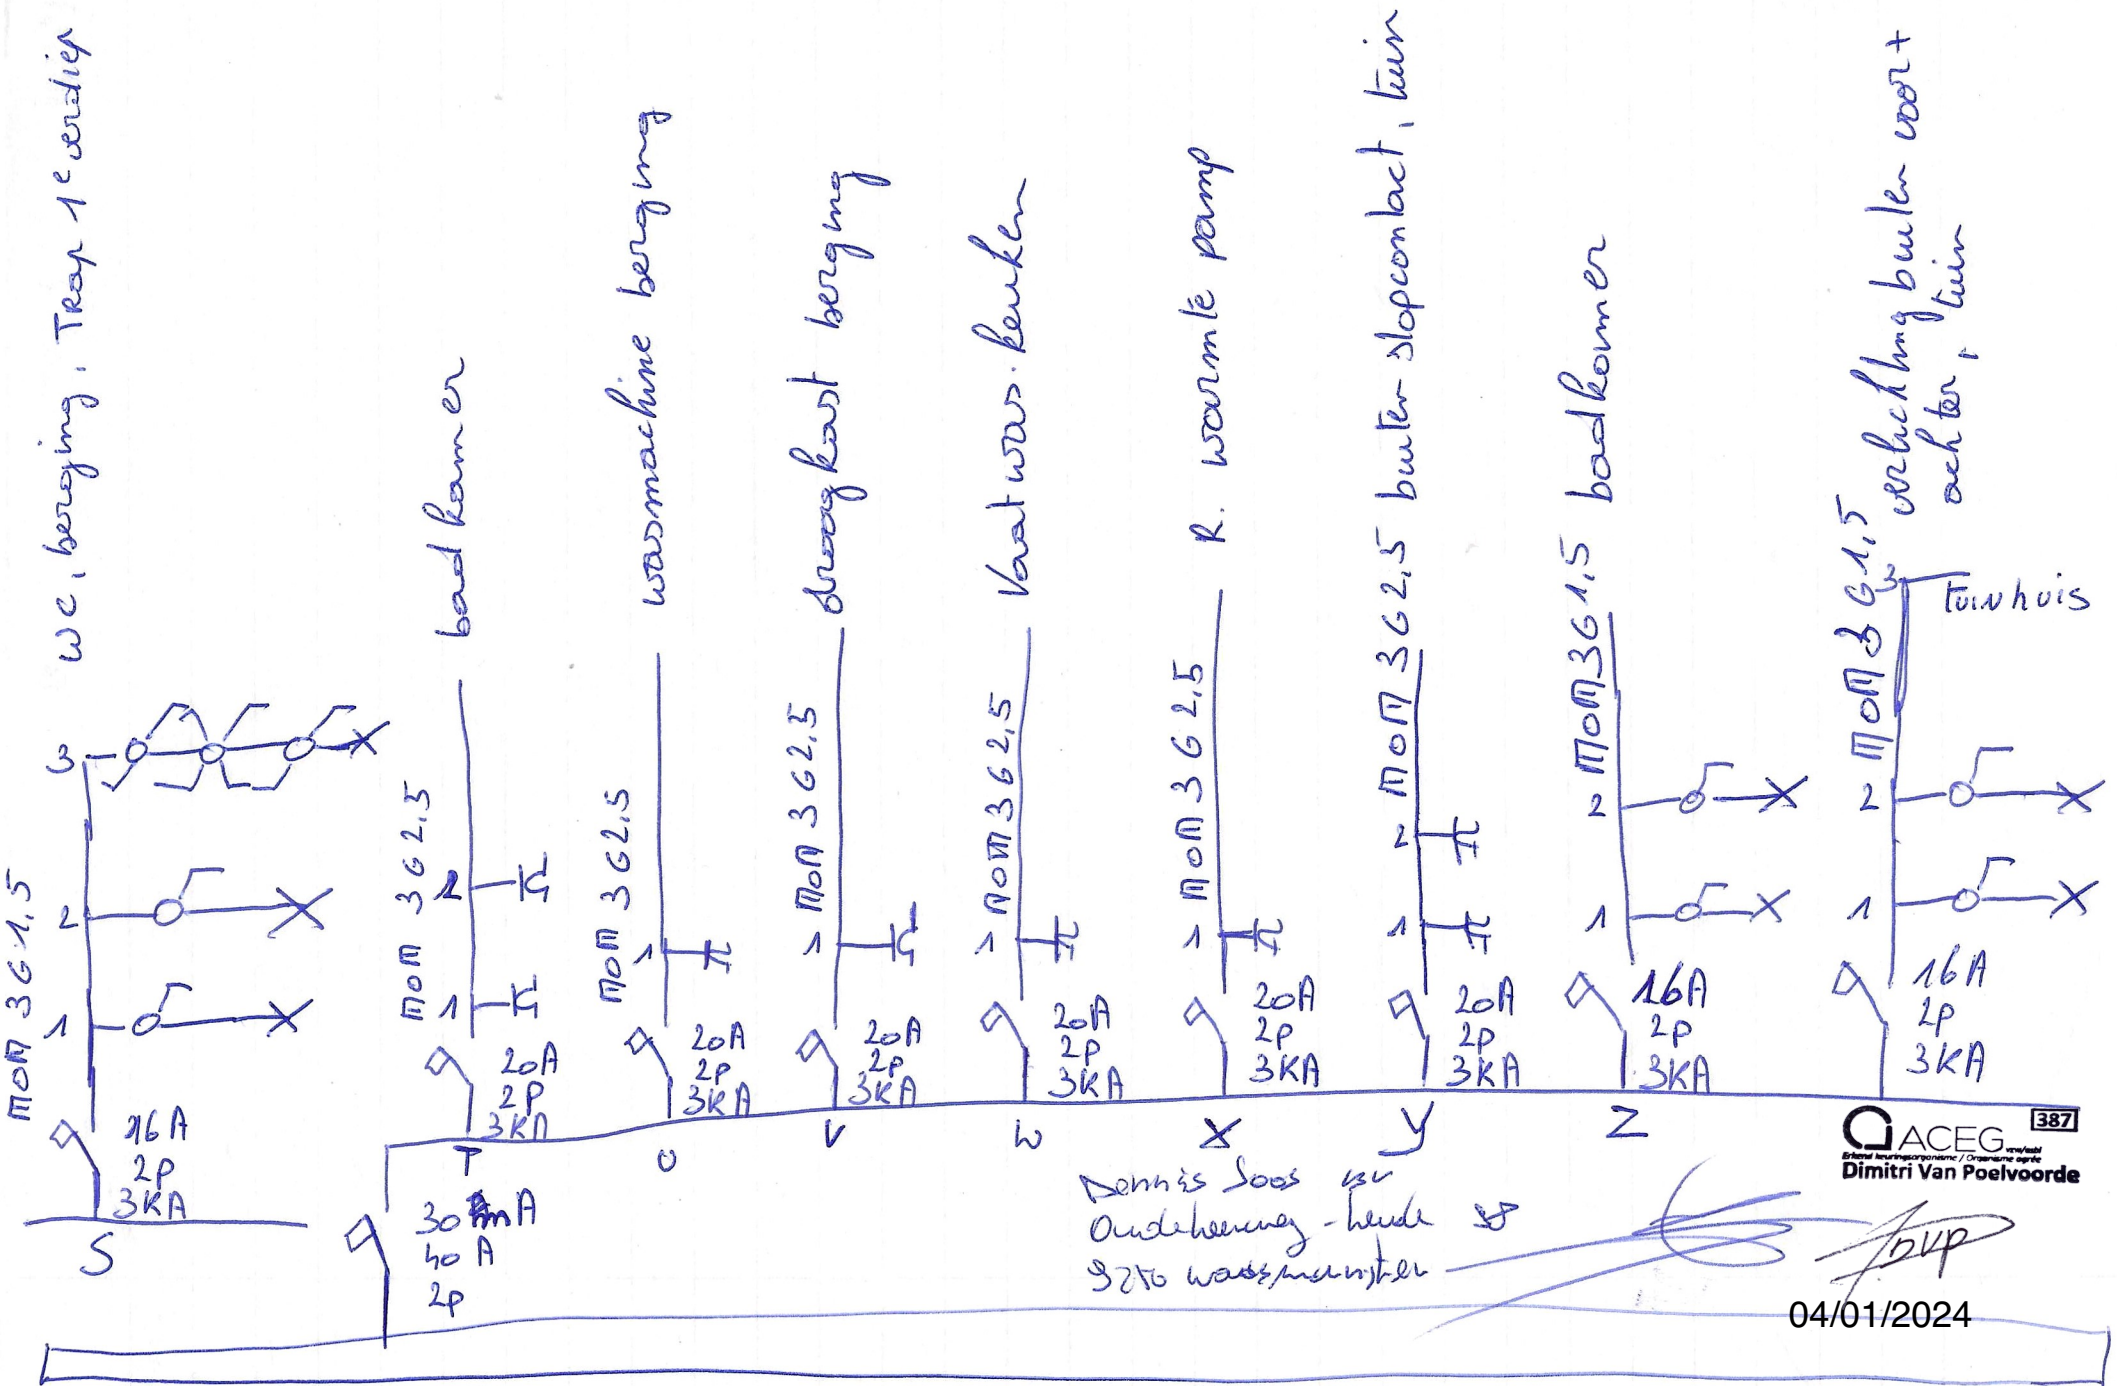 wc, berging, Trap 1e verdiep
MOM 3G1,5
3
2
1
16A
2P
3KA
S
badkamer
MOM 3G2.5
2
1
20A
2P
3KA
T
wasmachine berging
MOM 3G2.5
1
20A
2P
3KA
U
droogkast berging
MOM 3G2.5
1
20A
2P
3KA
V
Vaatwas. keuken
MOM 3G2.5
1
20A
2P
3KA
W
R. warmte pomp
MOM 3G2.5
1
20A
2P
3KA
X
buiten stopcontact, tuin
MOM 3G2,5
2
1
20A
2P
3KA
Y
badkamer
MOM 3G1,5
2
1
16A
2P
3KA
Z
verlichting buiten voor+
achter, tuin
MOM 3G1,5
3
tuinhuis
2
1
16A
2P
3KA
30mA
40A
2P
Dennis Soos bv
38
9250 waasmunster
387
ACEG vzw/asbl
Erkend keuringsorganisme / Organisme agréé
Dimitri Van Poelvoorde
DVP
04/01/2024